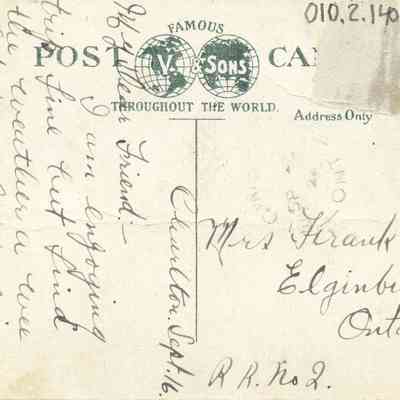 010.2.140
FAMOUS
POST CA
V. & SONS
THROUGHOUT THE WORLD.
Address Only
Charlton. Sept. 16.
My Dear Friend:-
I am enjoying
trip fine but find
the weather a wee
Mrs Frank
Elginbu
Onta
R.R. No 2.
ONT